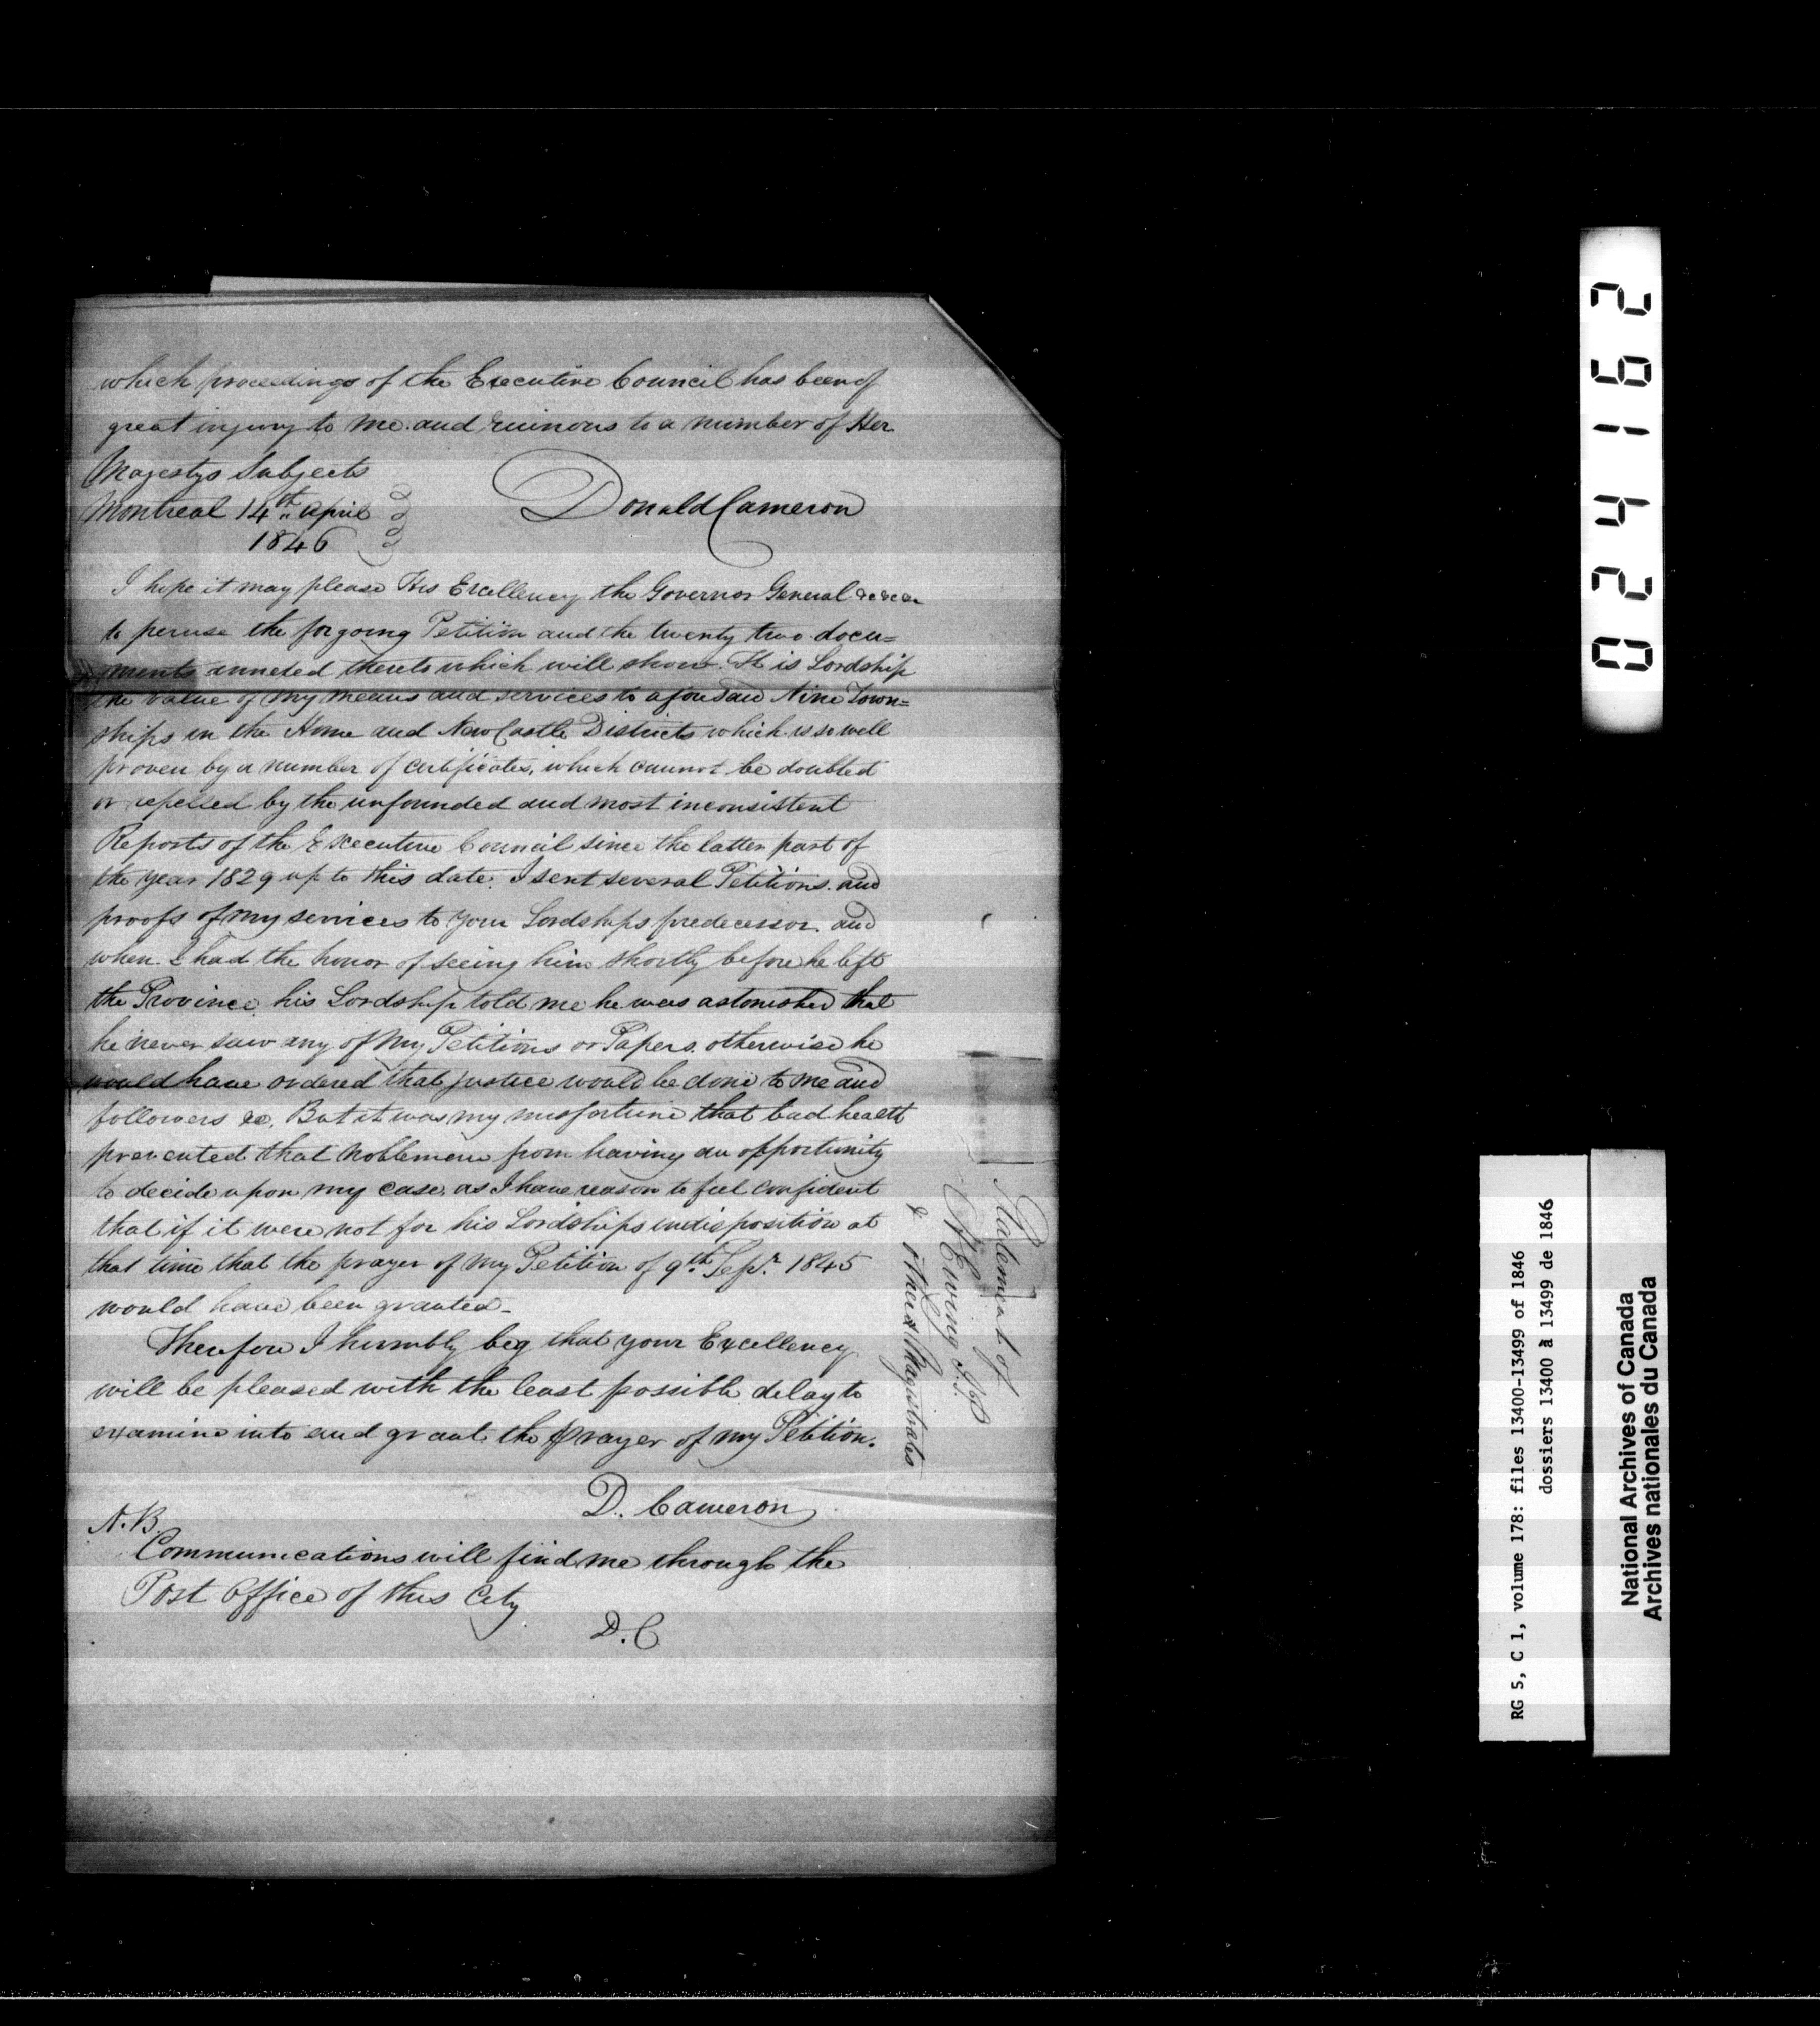 which proceedings of the Executive Council has been of
great injury to me and ruinous to a number of Her
Majestys Subjects
Montreal 14th April
1846
Donald Cameron
I hope it may please His Excellency the Governor General &c &c &c
to peruse the forgoing Petition and the twenty two docu=
ments annexed thereto which will show His Lordship
the value of my means and services to aforesaid Nine Town=
ships in the Home and NewCastle Districts which is so well
proven by a number of certificates, which cannot be doubted
or repelled by the unfounded and most inconsistent
Reports of the Executive Council since the latter part of
the year 1829 up to this date. I sent several Petitions and
proofs of my services to your Lordships predecessor and
when I had the honor of seeing him shortly before he left
the Province his Lordship told me he was astonished that
he never saw any of my Petitions or Papers otherwise he
would have ordered that justice would be done to me and
followers &c, But it was my misfortune that bad health
prevented that noblemen from having an opportunity
to decide upon my case, as I have reason to feel confident
that if it were not for his Lordships indisposition at
that time that the prayer of my Petition of 9th Sepr. 1845
would have been granted-
Therefore I humbly beg that your Excellency
will be pleased with the least possible delay to
examine into and grant the prayer of my Petition.
D. Cameron
N.B.
Communications will find me through the
Post Office of this City
D.C
Statement of
Ewing J.P
& other Magistrates
024162
RG 5, C 1, volume 178: files 13400-13499 of 1846
dossiers 13400 à 13499 de 1846
National Archives of Canada
Archives nationales du Canada